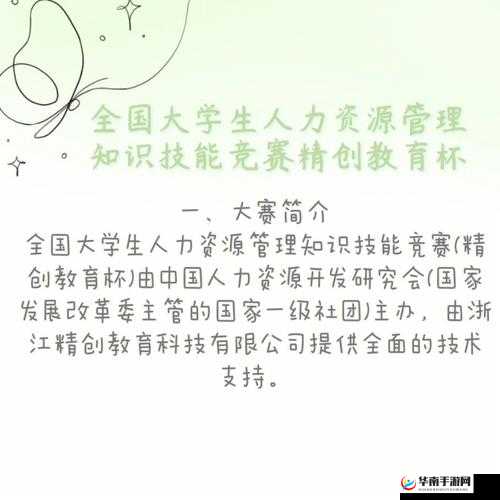 全国大学生人力资源管理
知识技能竞赛精创教育杯
一、大赛简介
全国大学生人力资源管理知识技能竞赛(精
创教育杯)由中国人力资源开发研究会(国家
发展改革委主管的国家一级社团)主办，由浙
江精创教育科技有限公司提供全面的技术
支持。
华南手游网